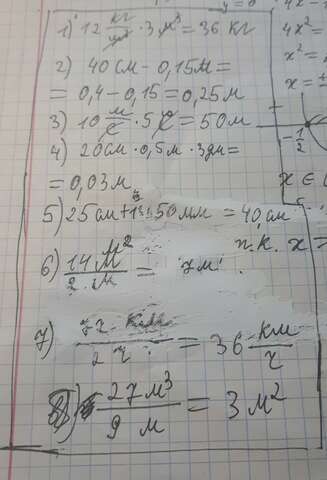 1) 12 кг/м³ · 3 м³ = 36 кг
2) 40 см - 0,15 м =
= 0,4 - 0,15 = 0,25 м
3) 10 м/с · 5 с = 50 м
4) 20 см · 0,5 м · 3 дм =
= 0,03 м³
5) 25 см + 150 мм = 40 см
6) 14 м² / 2 м = 7 м
7) 72 км / 2 ч = 36 км/ч
27 м³ / 9 м = 3 м²
4x² =
x² =
x = ±
-1/2
x ∈
т.к. x =